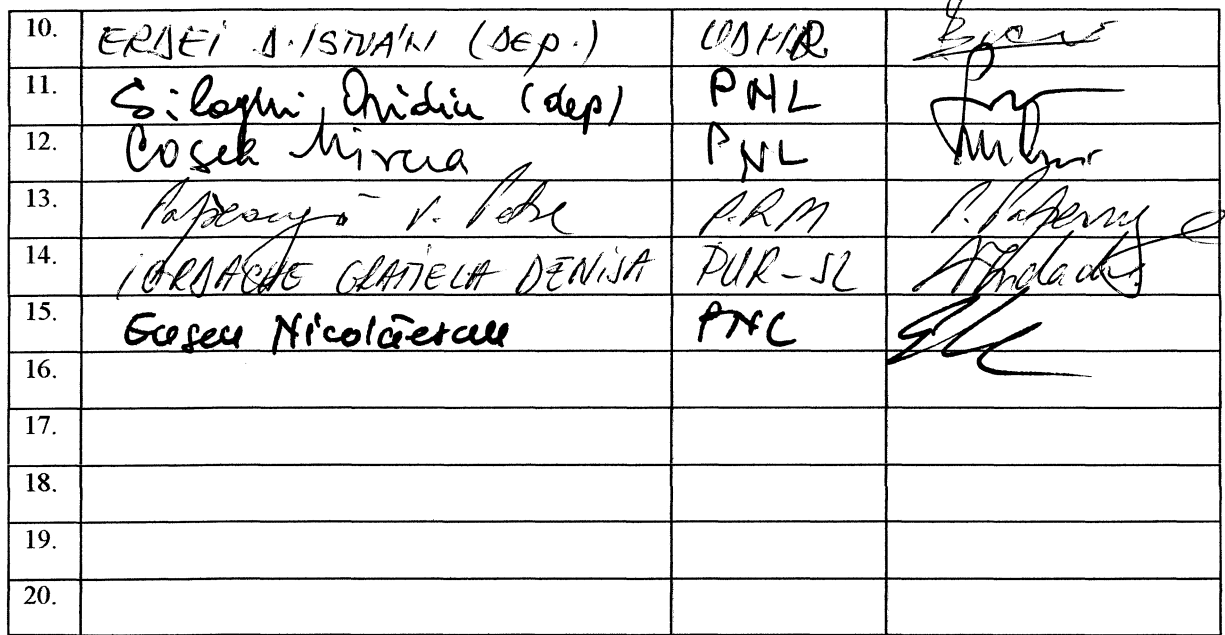 10. ERDEI D. ISTVÁN (DEP.) UDMR
11. Silaghi Ovidiu (dep) PNL
12. Coșea Mircea PNL
13. V. Petre P.R.M
14. IORDACHE GRATIELA DENISA PUR-SL
15. Eugen Nicolăescu PNL
16.
17.
18.
19.
20.